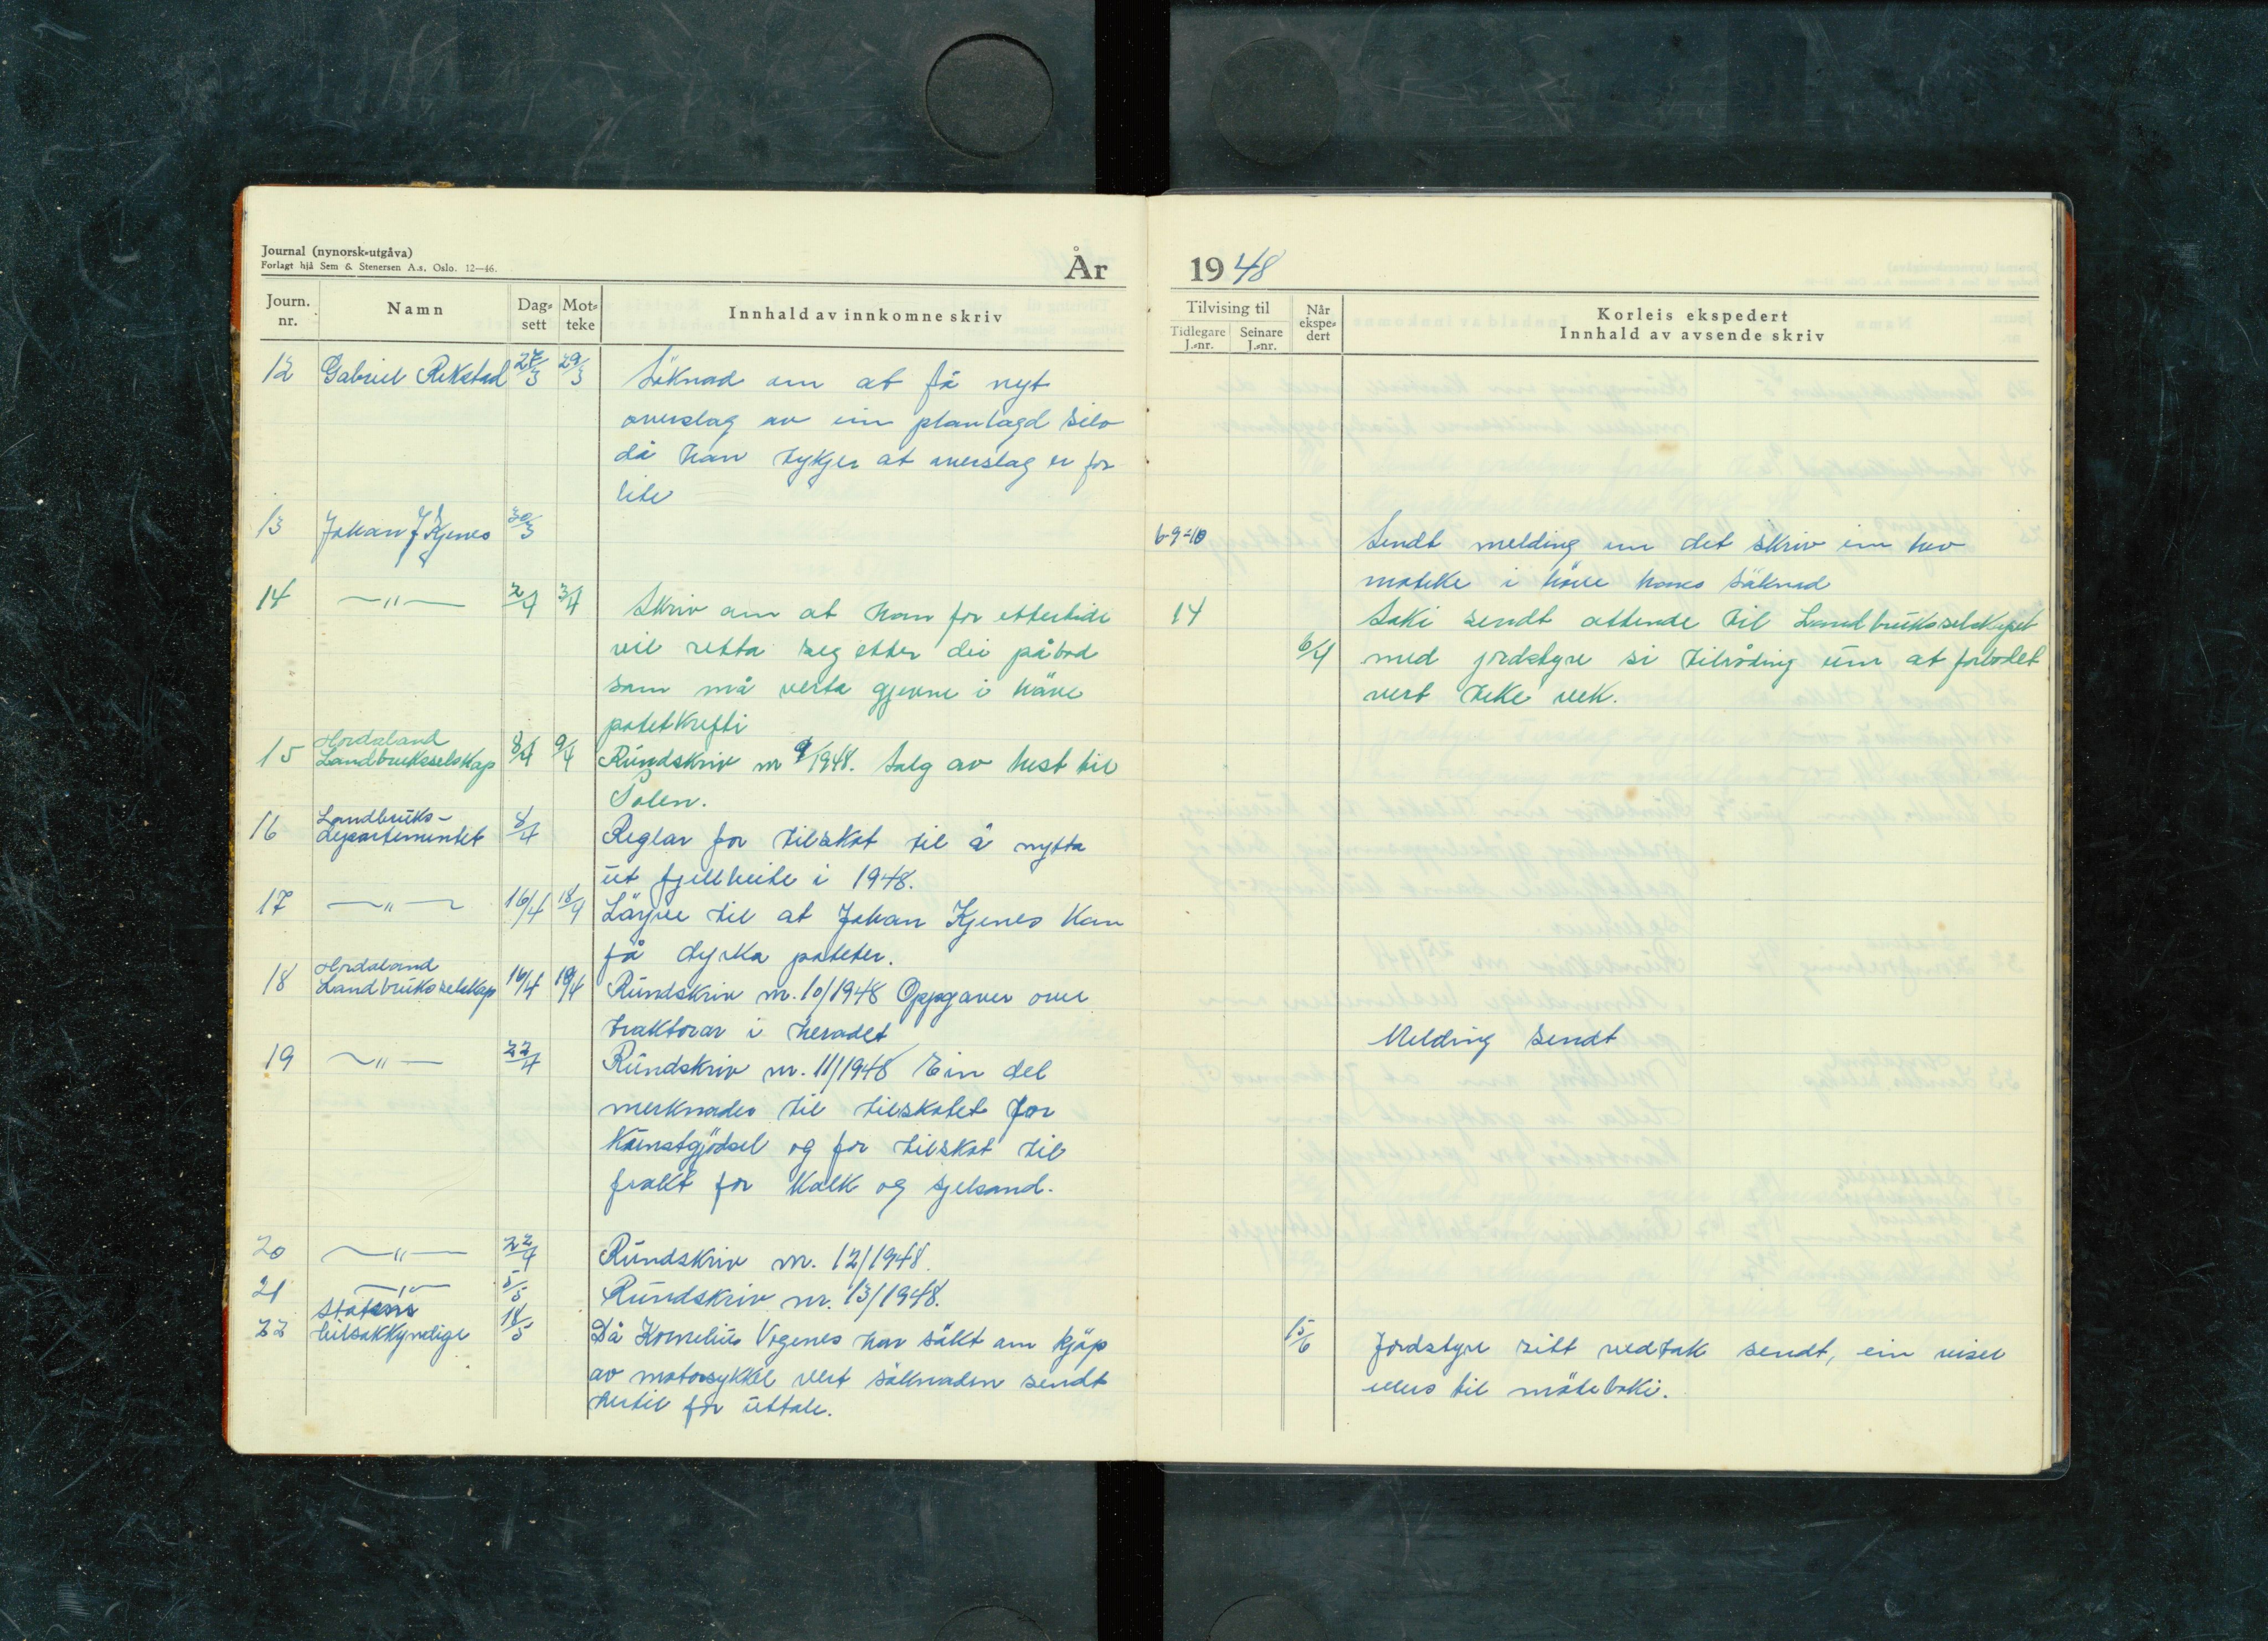 Journal (nynorsk-utgåva)
Forlagt hjå Sem & Stenersen A.s. Oslo. 12—46.
År
Journ. nr.
Namn
Dag-sett
Mot-teke
Innhald av innkomne skriv
12 Gabriel Rekstad 27/3 29/3 Söknad om at få nyt
overslag av ein planlagd silo
då han tykjer at overslag er for
lite
13 Johan J Kjenes 30/3
14 —"— 2/4 3/4 Skriv om at han for ettertidi
vil retta seg etter dei påbod
som må verta gjevne i häve
potetkrefti
15 Hordaland
Landbruksselskap 8/4 9/4 Rundskriv nr 9/1948. Salg av hest til
Polen.
16 Landbruks-
departementet 8/4 Reglar for tilskot til å nytta
ut fjellbeite i 1948.
17 —"— 16/4 18/4 Löyve til at Johan Kjenes kan
få dyrka poteter.
18 Hordaland
Landbruksselskap 16/4 18/4 Rundskriv nr. 10/1948 Oppgaver over
traktorar i heradet
19 —"— 22/4 Rundskriv nr. 11/1948 Ein del
merknader til tilskotet for
Kunstgjödsel og for tilskot til
frakt for kalk og sjelsand.
20 —"— 22/4 Rundskriv nr. 12/1948.
21 —"— 5/5 Rundskriv nr. 13/1948.
22 Statens
bilsakkyndige 18/5 Då Kornelius Vogenes har sökt om kjöp
av motorsykkel vert söknaden sendt
hertil for uttale.
1948
Tilvising til
Tidlegare J.-nr.
Seinare J.-nr.
Når ekspe-dert
Korleis ekspedert
Innhald av avsende skriv
6-9-10 Sendt melding um det skriv ein hev
moteke i höve hans söknad
14 Saki sendt attende til Landbruksselskapet
6/4 med jordstyre si tilråding um at forbodet
vert teke vek.
Melding sendt
15/6 Jordstyre sitt vedtak sendt, ein viser
ellers til möteboki.